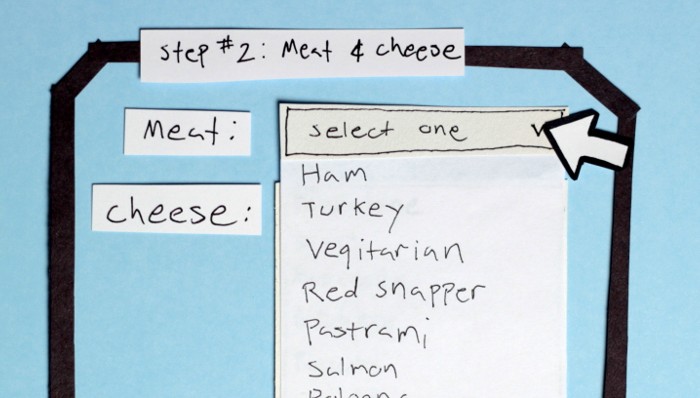 Step #2: Meat & cheese
Meat:
select one
Ham
Turkey
Vegitarian
Red snapper
Pastrami
Salmon
cheese: